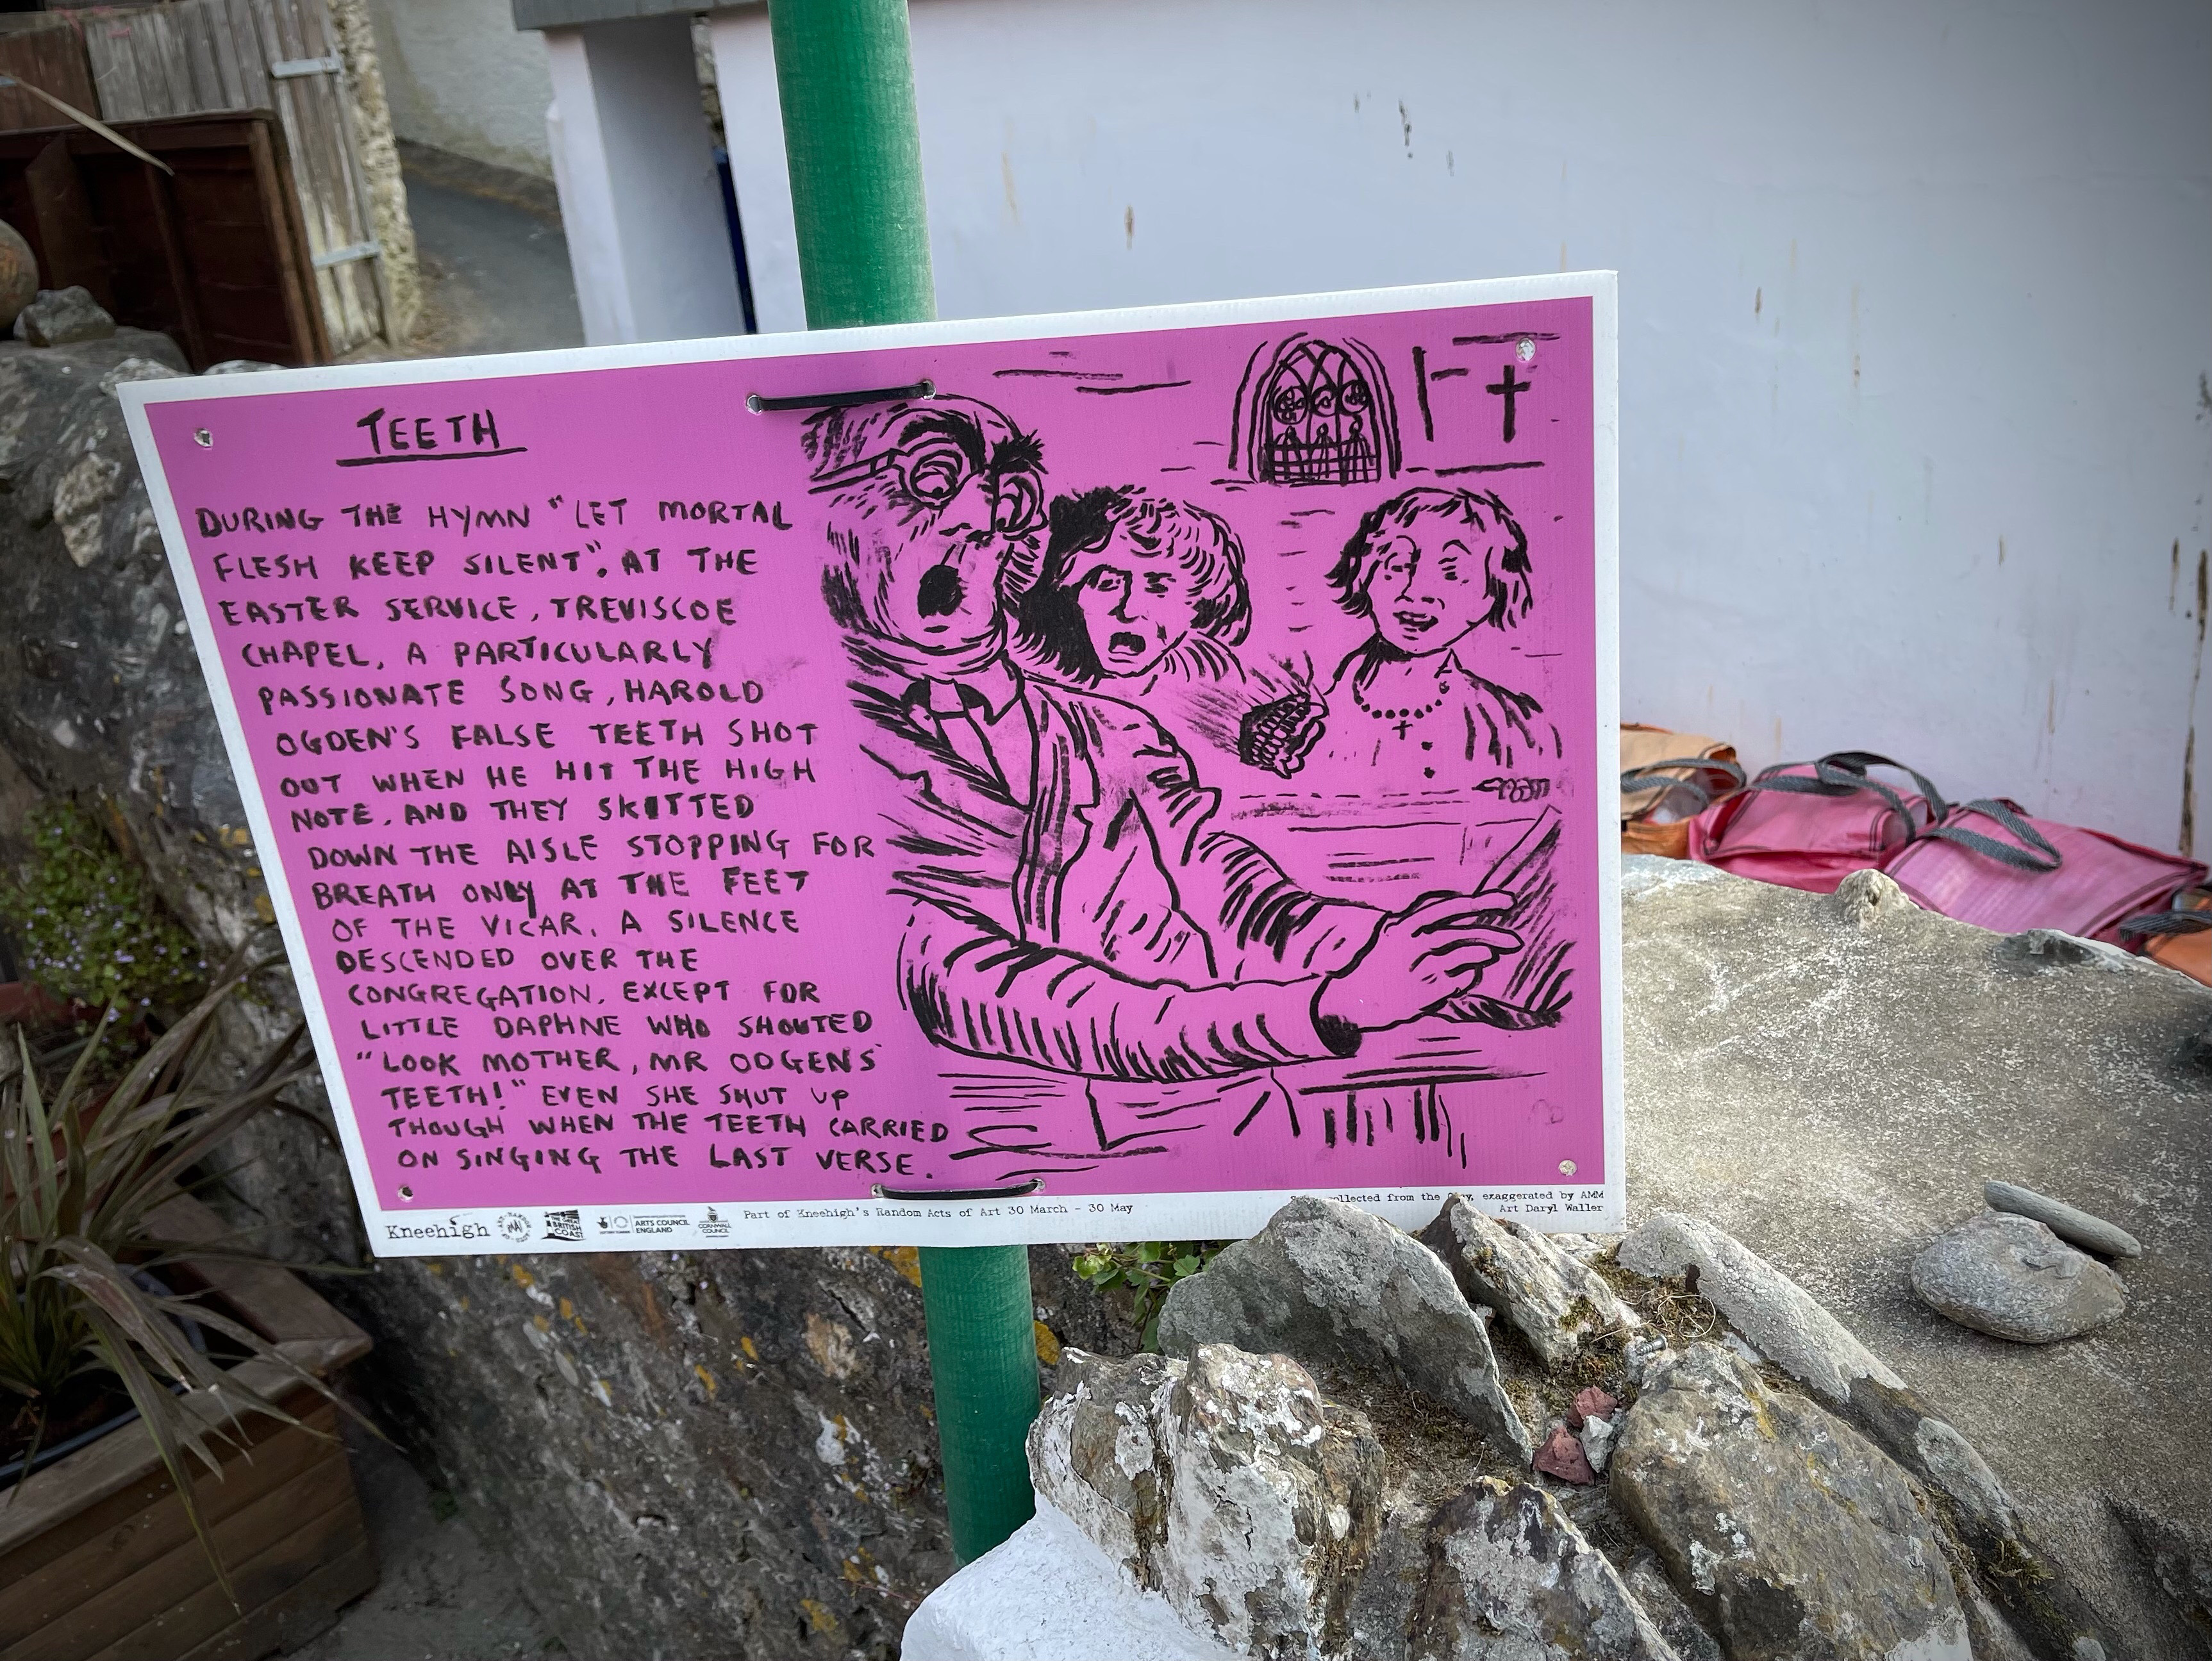 TEETH
DURING THE HYMN "LET MORTAL
FLESH KEEP SILENT", AT THE
EASTER SERVICE, TREVISCOE
CHAPEL, A PARTICULARLY
PASSIONATE SONG, HAROLD
OGDEN'S FALSE TEETH SHOT
OUT WHEN HE HIT THE HIGH
NOTE, AND THEY SKITTED
DOWN THE AISLE STOPPING FOR
BREATH ONLY AT THE FEET
OF THE VICAR. A SILENCE
DESCENDED OVER THE
CONGREGATION, EXCEPT FOR
LITTLE DAPHNE WHO SHOUTED
"LOOK MOTHER, MR ODGENS'
TEETH!" EVEN SHE SHUT UP
THOUGH WHEN THE TEETH CARRIED
ON SINGING THE LAST VERSE.
Kneehigh
BRITISH
COAST
ARTS COUNCIL
ENGLAND
CORNWALL
COUNCIL
Part of Kneehigh's Random Acts of Art 30 March - 30 May
collected from the, exaggerated by AMM
Art Daryl Waller